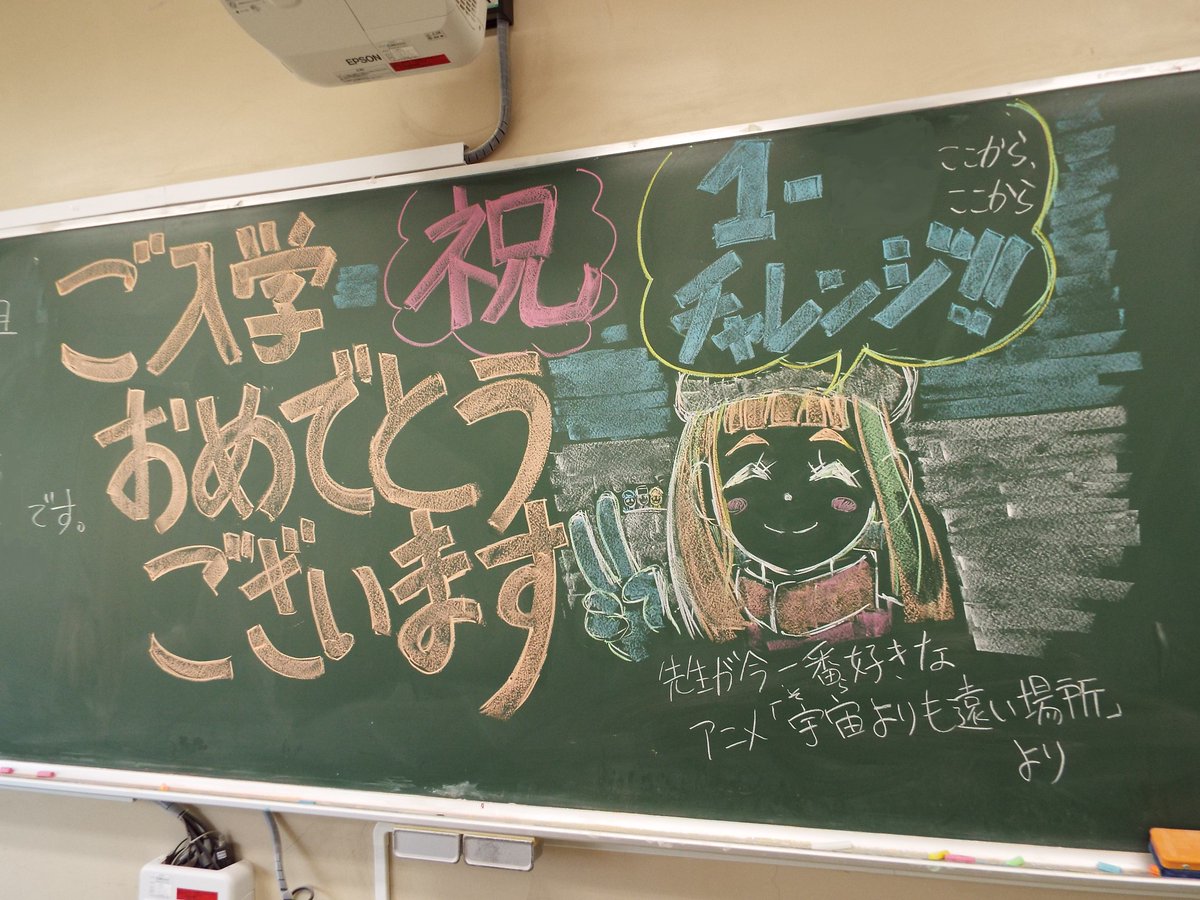 EPSON
ご入学
祝
おめでとう
ございます
1-
チャレンジ!!
ここから、
ここから
です。
先生が今一番好きな
アニメ「宇宙よりも遠い場所」
より